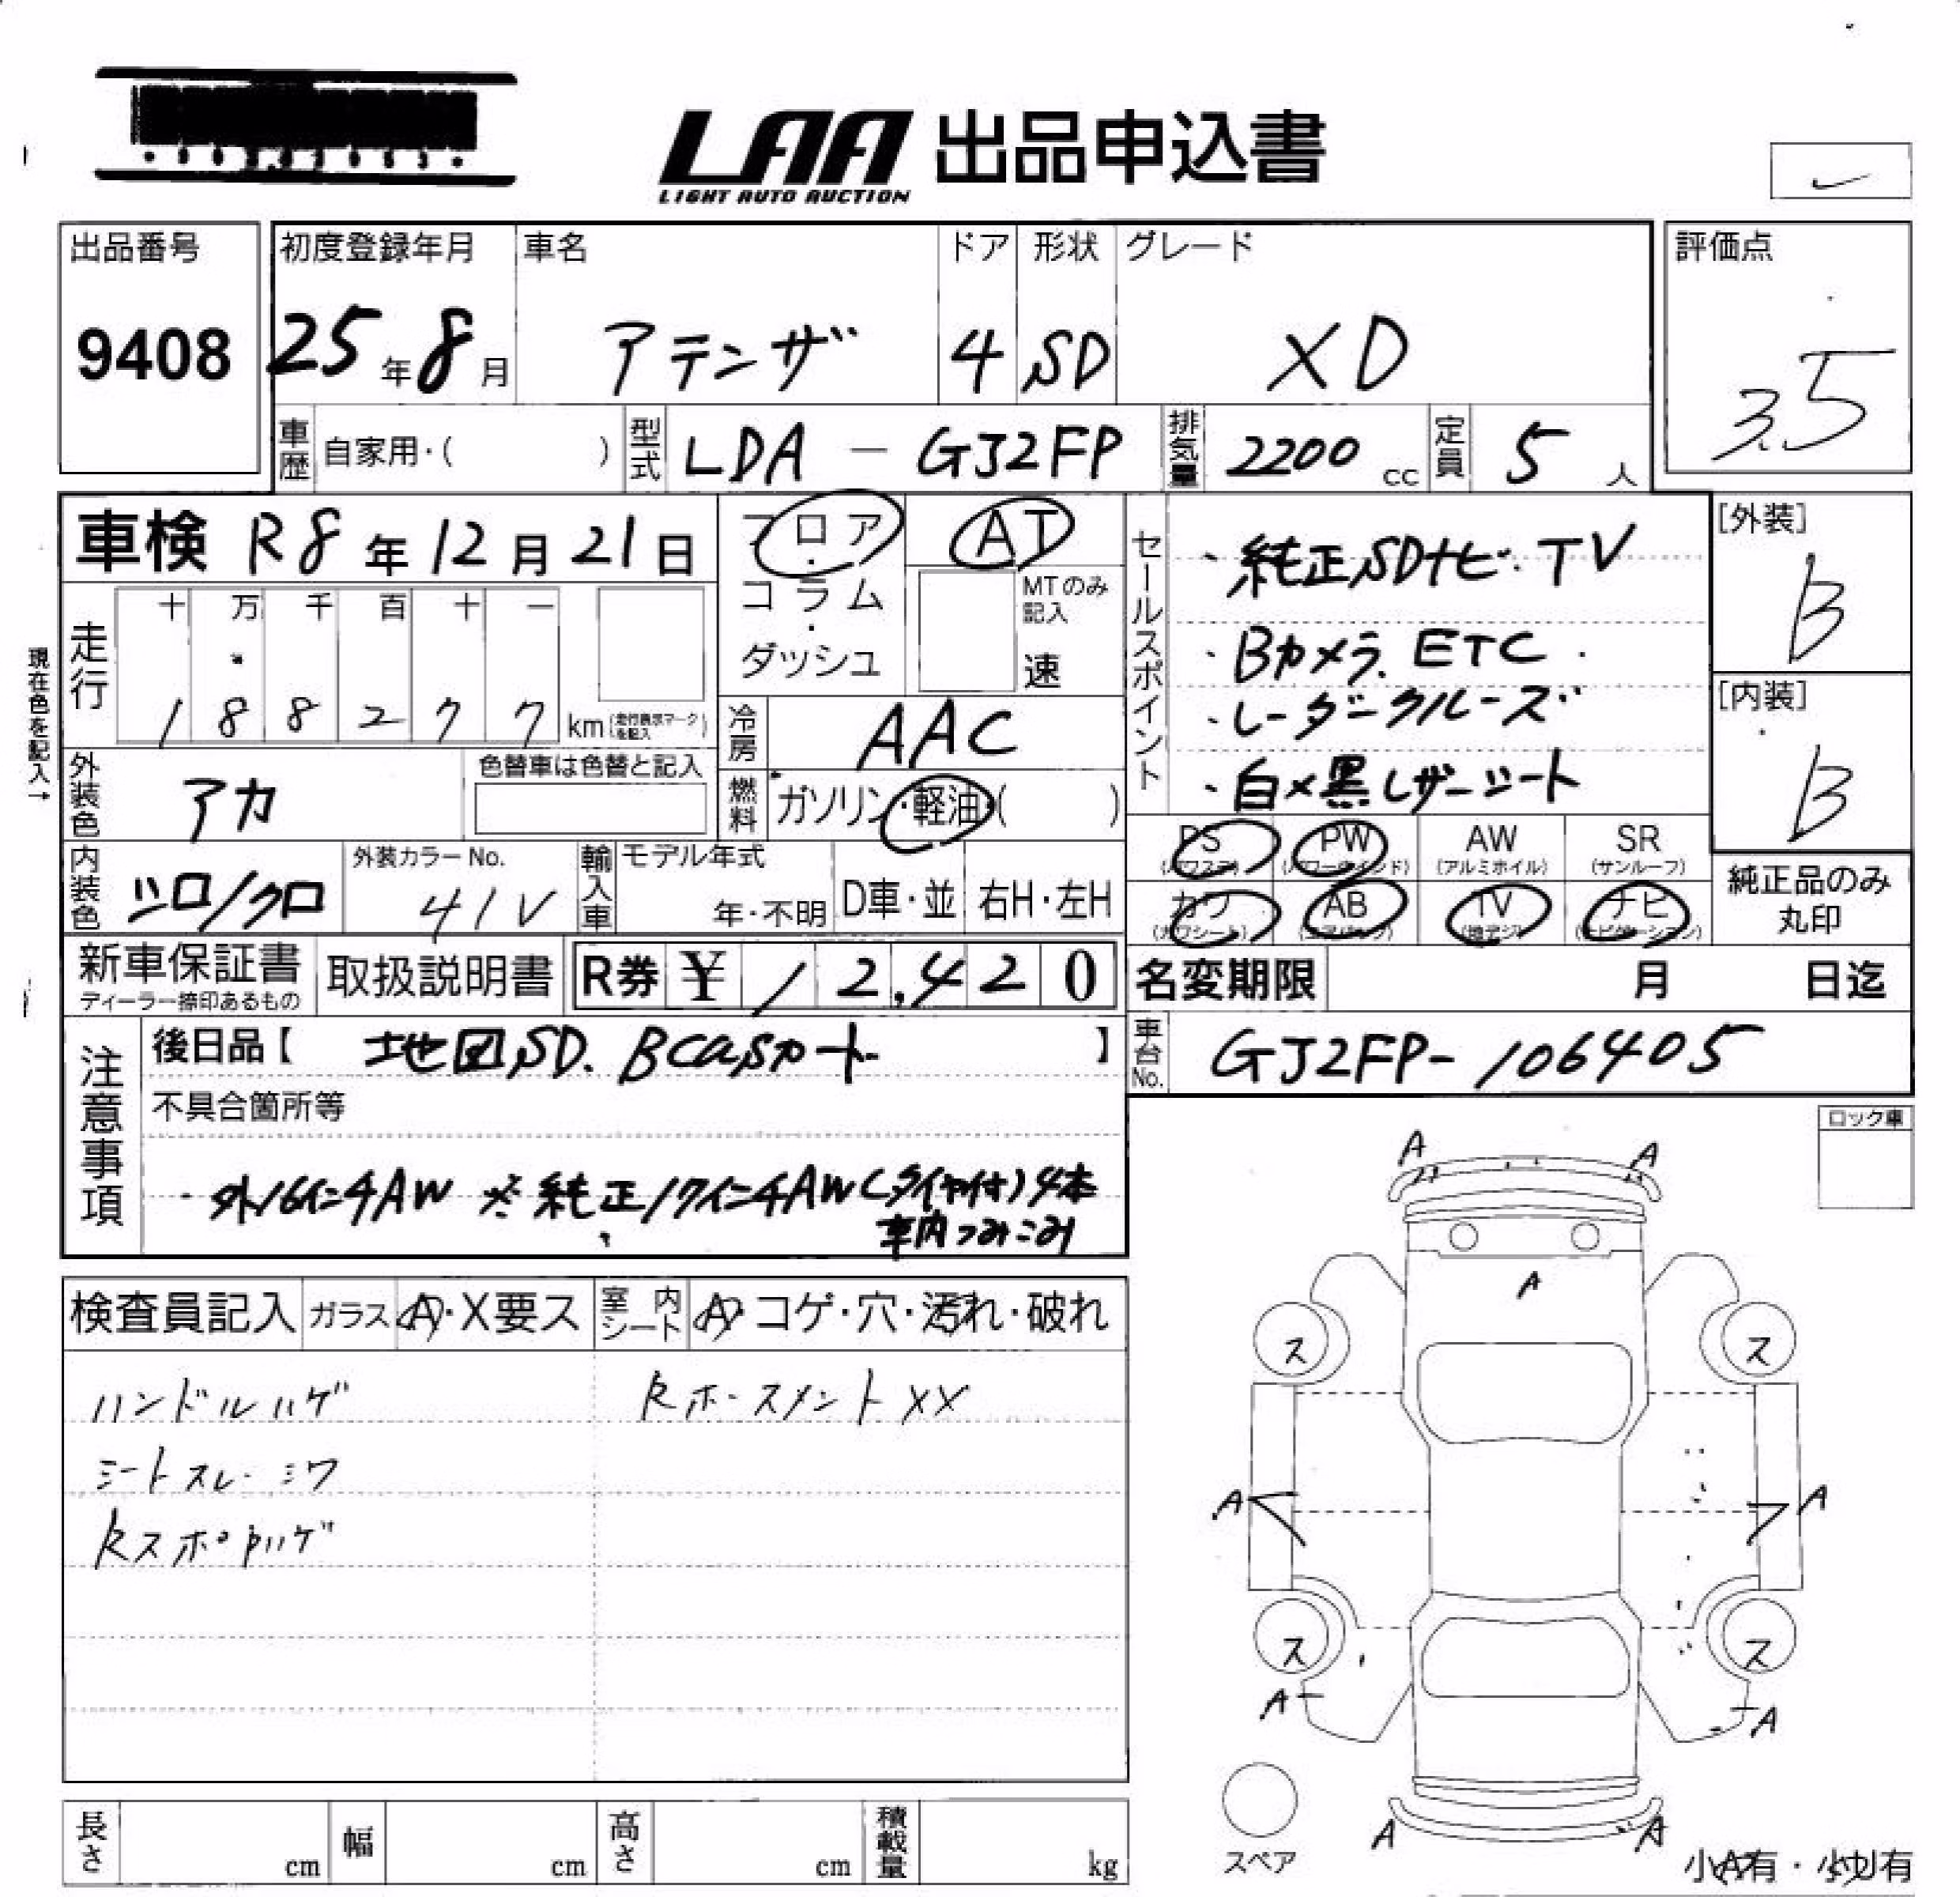 LAA 出品申込書
LIGHT AUTO AUCTION
出品番号
9408
初度登録年月
25年8月
車名
アテンザ
ドア
4
形状
SD
グレード
XD
評価点
3.5
車歴 自家用・( )
型式 LDA - GJ2FP
排気量 2200 cc
定員 5 人
車検 R8年12月21日
フロア・コラム・ダッシュ
AT
MTのみ記入
速
セールスポイント
・純正SDナビ・TV
・Bカメラ. ETC
・レーダークルーズ
・白×黒レザーシート
[外装]
B
[内装]
B
現在色を記入→
走行
十 万 千 百 十 一
1 8 8 2 7 7 km (走行表示マークを記入)
冷房 AAC
外装色 アカ
色替車は色替と記入
燃料 ガソリン・軽油・( )
PS (パワステ)
PW (パワーウィンド)
AW (アルミホイル)
SR (サンルーフ)
カワ (カワシート)
AB (エアバック)
TV (地デジ)
ナビ (ナビゲーション)
純正品のみ丸印
内装色 シロ/クロ
外装カラーNo.
41V
輸入車
モデル年式
年・不明
D車・並
右H・左H
新車保証書
ディーラー捺印あるもの
取扱説明書
R券 ¥ 12,420
名変期限 月 日迄
注意事項
後日品【 地図SD. Bcasカード 】
車台No. GJ2FP-106405
不具合箇所等
・外16インチAW ※純正17インチAW(タイヤ付)4本
車内つみこみ
ロック車
検査員記入
ガラス A・X要ス
室内シート A・コゲ・穴・汚れ・破れ
ハンドルハゲ
シートスレ・シワ
Rスポ内ハゲ
Rホースメント XX
A A
A
ス ス
A A
ス ス
A A
A A
スペア
小A有・小U有
長さ cm
幅 cm
高さ cm
積載量 kg